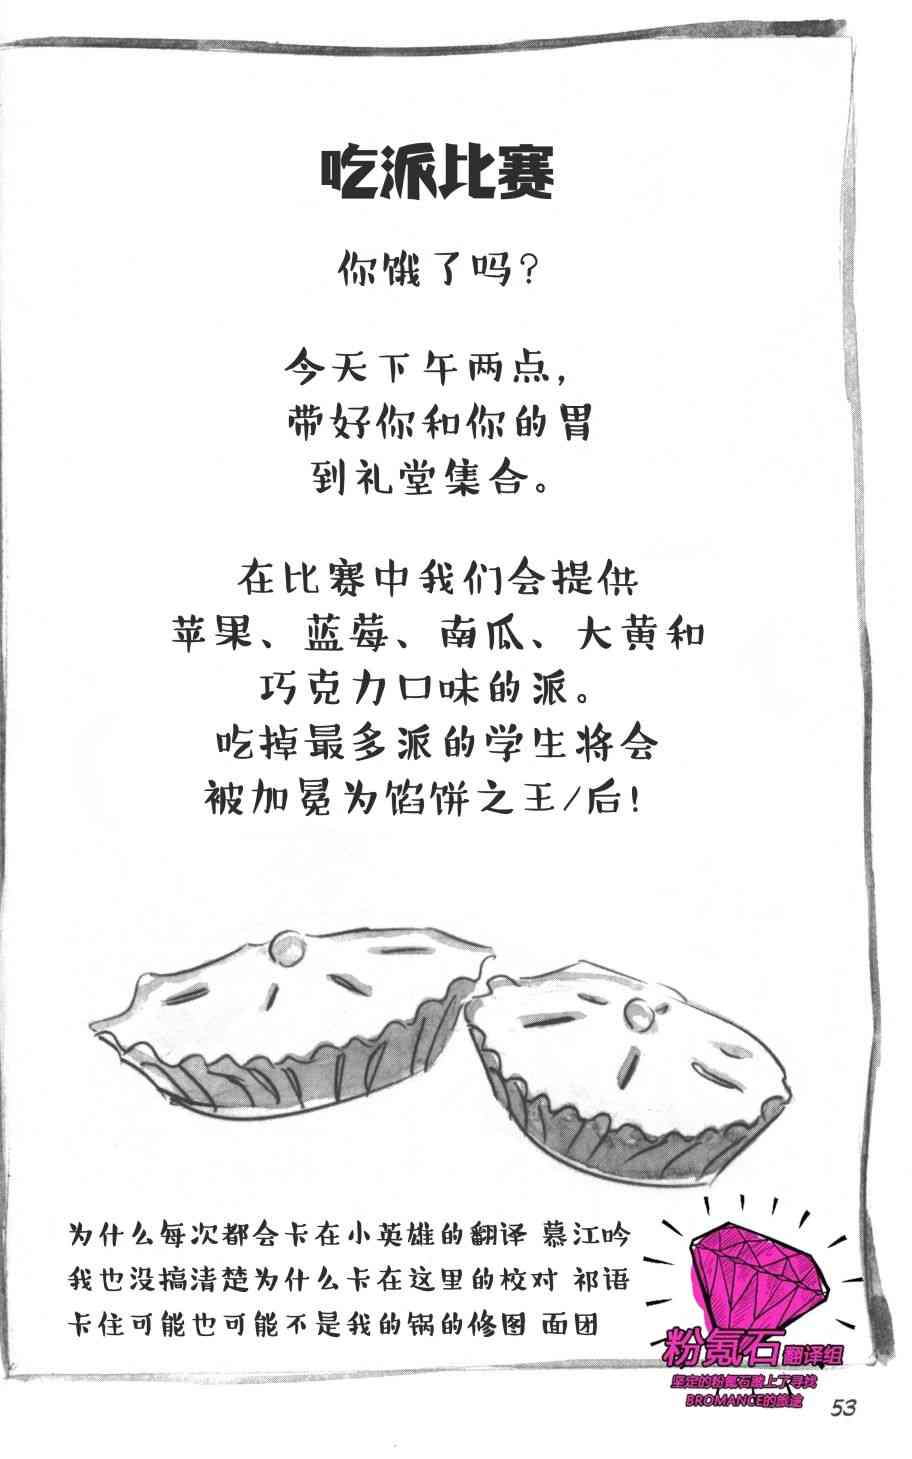 吃派比赛
你饿了吗？
今天下午两点，
带好你和你的胃
到礼堂集合。
在比赛中我们会提供
苹果、蓝莓、南瓜、大黄和
巧克力口味的派。
吃掉最多派的学生将会
被加冕为馅饼之王/后！
为什么每次都会卡在小英雄的翻译 慕江吟
我也没搞清楚为什么卡在这里的校对 祁语
卡住可能也可能不是我的锅的修图 面团
粉氪石翻译组
坚定的粉氪石踏上了寻找
BROMANCE的旅途
53